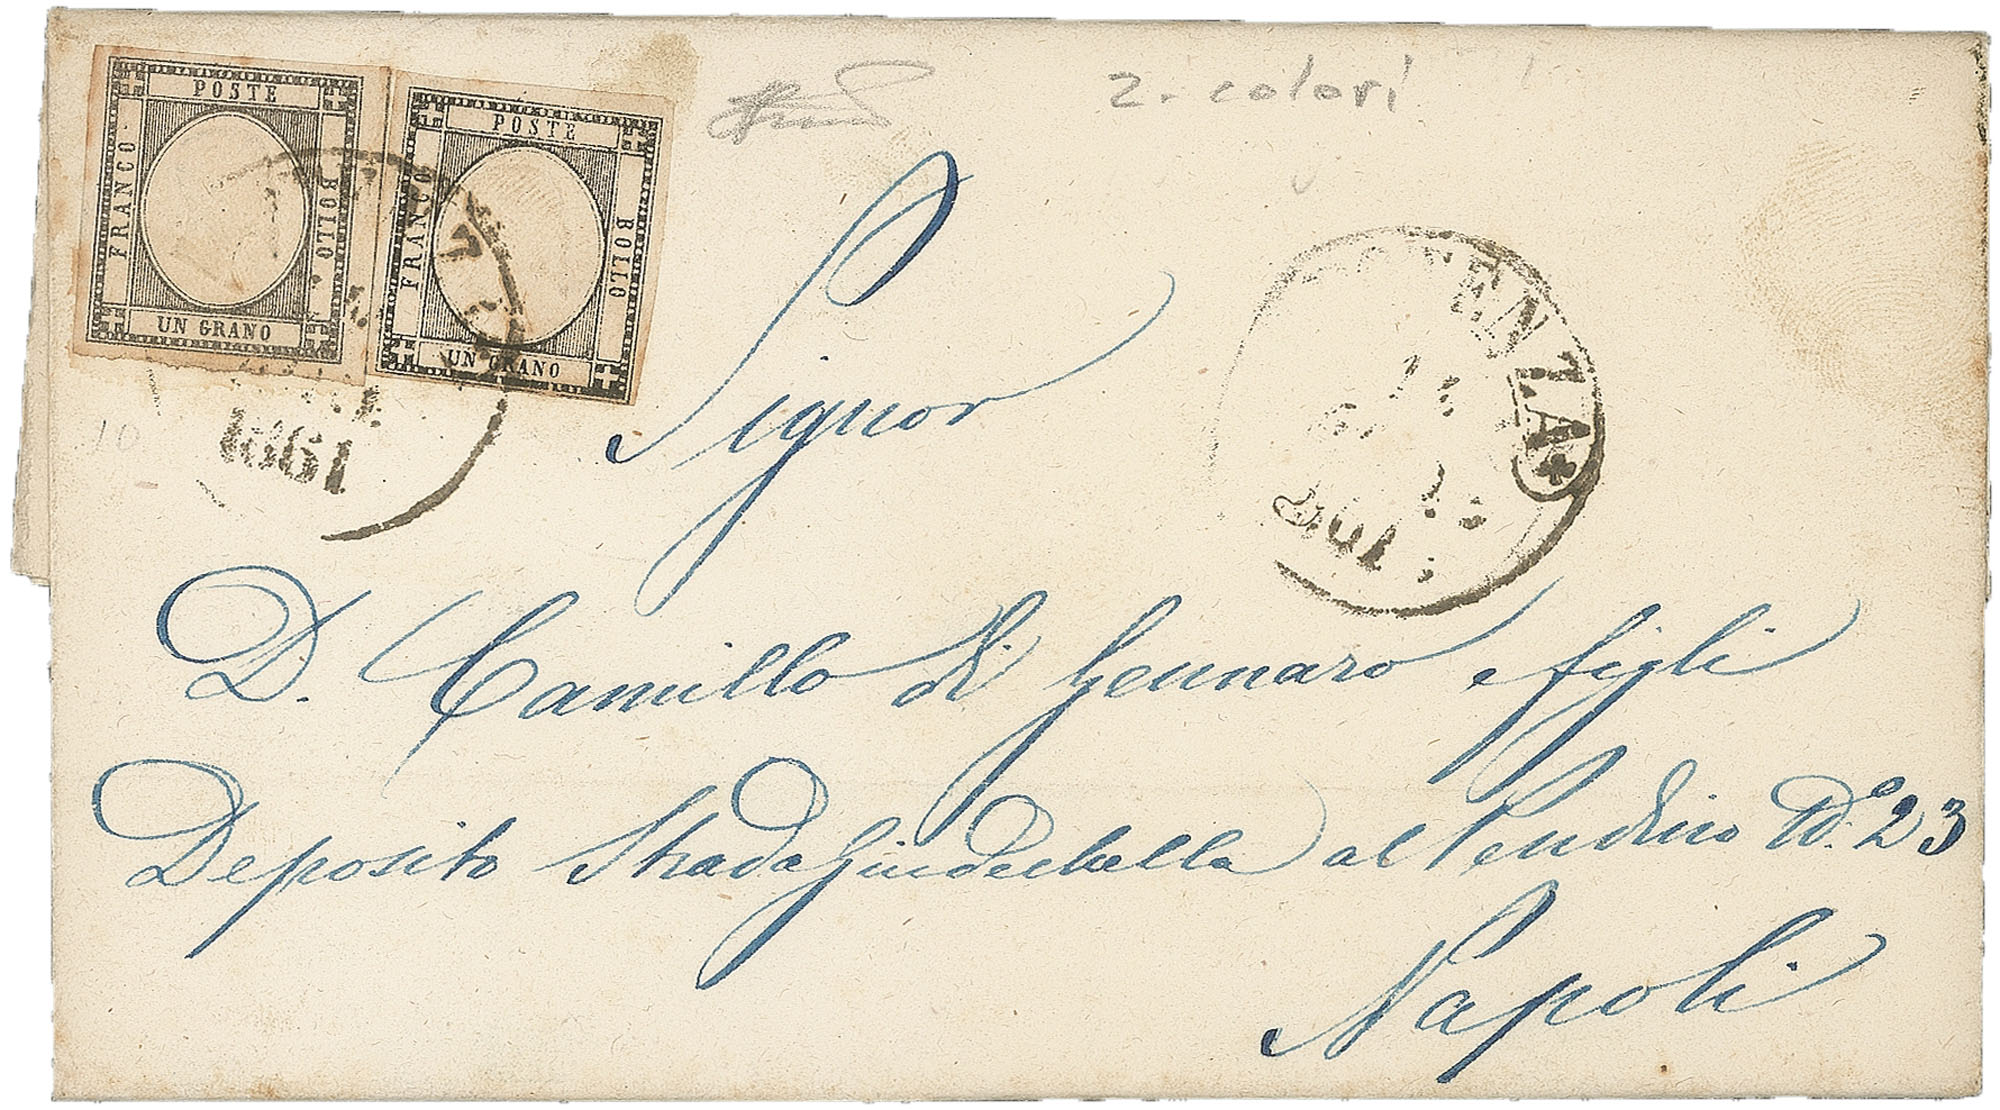 POSTE
FRANCO
BOLLO
UN GRANO
POSTE
FRANCO
BOLLO
UN GRANO
2. colori
POTENZA
1861
10
Signor
D. Camillo di Gennaro e figli
Deposito Strada Giudechella al Pendino N.º 23
Napoli